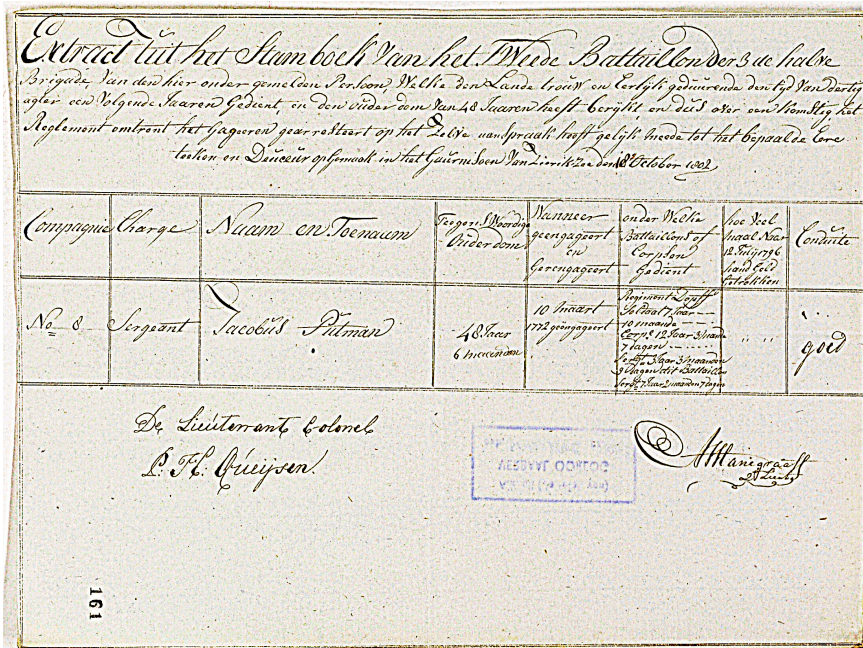 Extract uit het Stamboek van het Tweede Battaillon der 3de halve
Brigade, van den hier onder gemelden Persoon, Welke den Lande trouw en Eerlijk geduurende den tyd van dertig
agter een volgende Jaaren Gedient, en den ouderdom van 48 Jaaren heeft bereykt, en dus over een komstig het
Reglement omtrent het Gageeren gearresteert op het Zelve aanspraak heeft gelijk meede tot het bepaalde Eere
teeken en Douceur opgemaak in het Guarnisoen van Zierikzee den 18 October 1802
Compagnie
Charge
Naam en Toenaam
Teegens Woordige
Ouderdom
Wanneer
geengageert
en
Gerengageert
onder Welke
Battaillons of
Corpsen
Gedient
hoe Veel
maal Naar
12 July 1796
hand Geld
getrokken
Conduite
No 8
Sergeant
Jacobus Putman
48 Jaar
6 maanden
10 Maart
1772 geëngageert
Regiment Dopff
Soldaat 7 Jaar
10 maande
Corpl 12 Jaar 3 maande
7 dagen
Sergt 3 Jaar 3 maanden
9 dagen dit Battaillon
Sergt 7 Jaar 2 maanden 7 dagen
" "
goed
De Lieutenant Colonel
P. H. Queijsen
A Manegraaff
2e Lieut
VERZAAL OORLOG
161